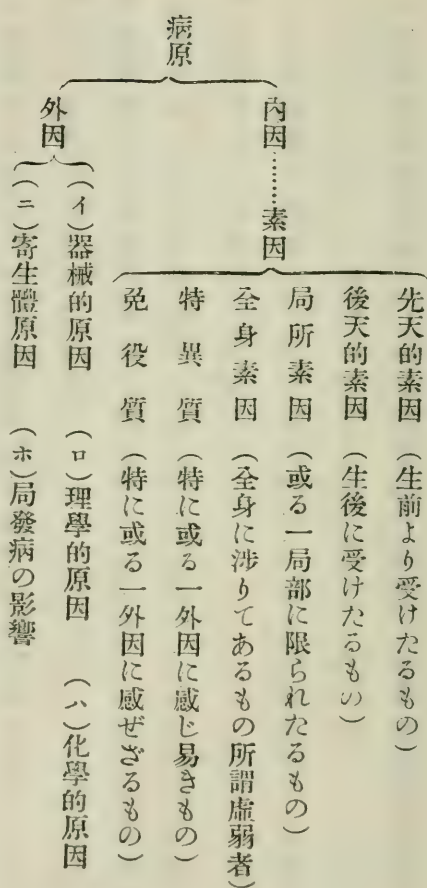 病原
内因………素因
先天的素因（生前より受けたるもの）
後天的素因（生後に受けたるもの）
局所素因（或る一局部に限られたるもの）
全身素因（全身に涉りてあるもの所謂虛弱者）
特異質（特に或る一外因に感じ易きもの）
免役質（特に或る一外因に感ぜざるもの）
外因
（イ）器械的原因　（ロ）理學的原因　（ハ）化學的原因
（ニ）寄生體原因　（ホ）局發病の影響